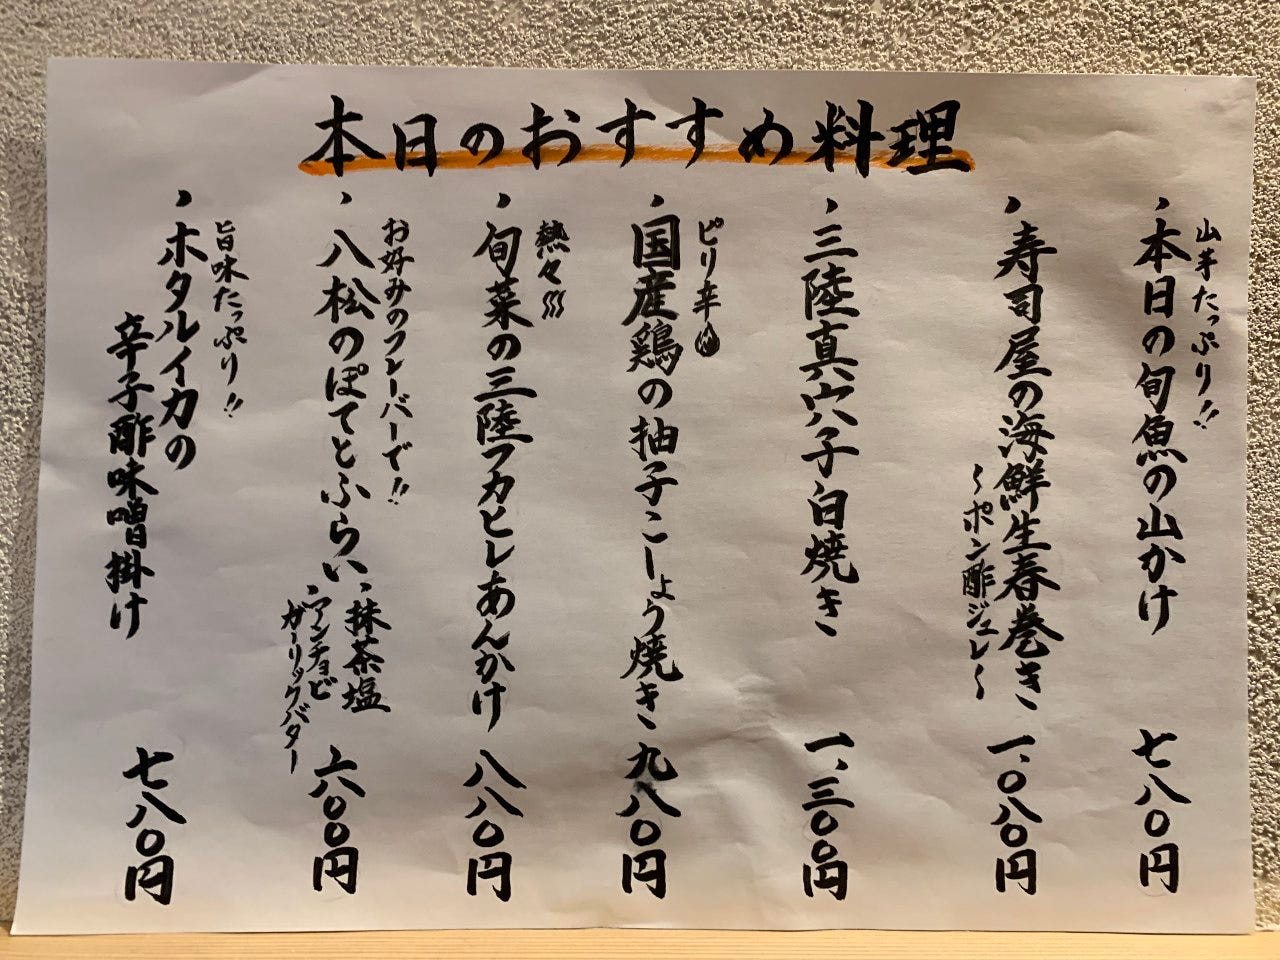 本日のおすすめ料理
山芋たっぷり!!
・本日の旬魚の山かけ 七八〇円
・寿司屋の海鮮生春巻き 一、〇八〇円
～ポン酢ジュレ～
・三陸真穴子白焼き 一、三〇〇円
ピリ辛
・国産鶏の柚子こしょう焼き 九八〇円
熱々
・旬菜の三陸フカヒレあんかけ 八八〇円
お好みのフレーバーで!!
・八松のぽてとふらい 六〇〇円
・抹茶塩
・アンチョビ
ガーリックバター
旨味たっぷり!!
・ホタルイカの
辛子酢味噌掛け 七八〇円